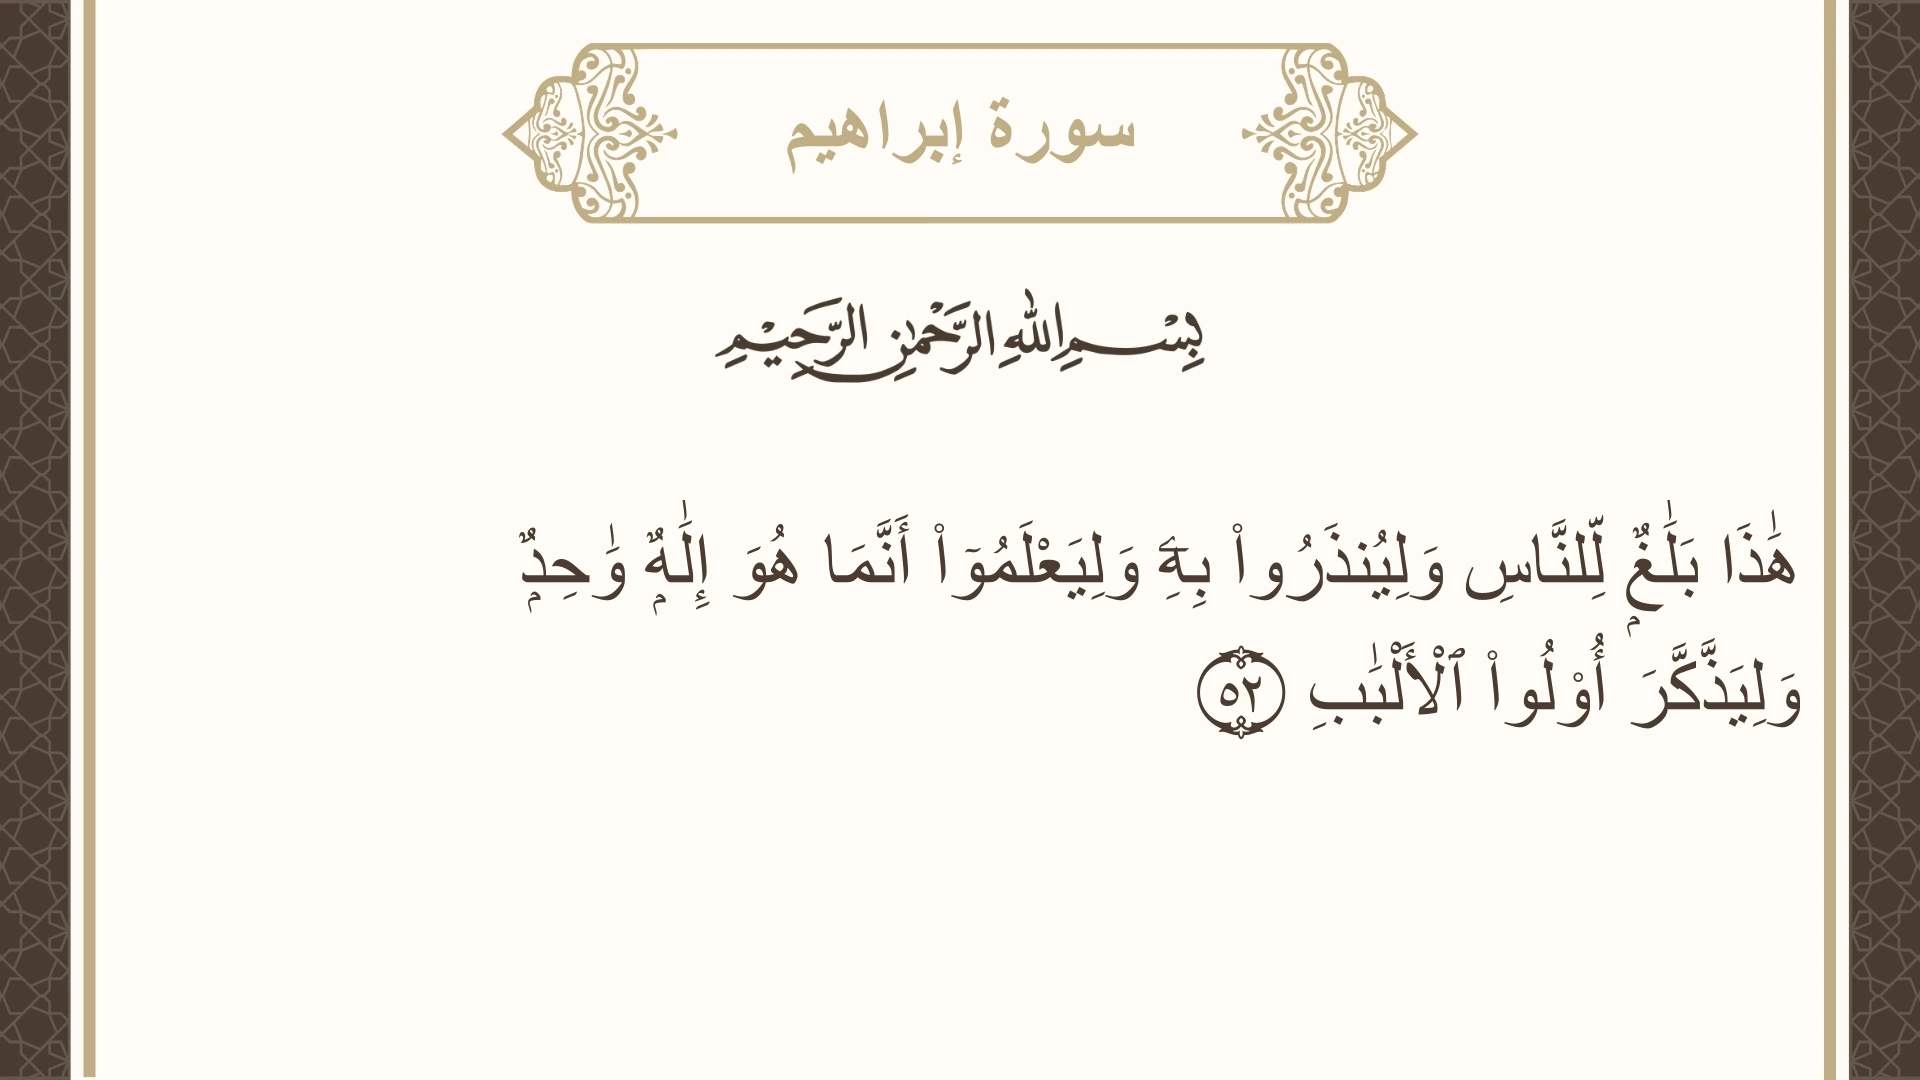 سورة إبراهيم
بِسْمِ اللهِ الرَّحْمٰنِ الرَّحِيْمِ
هَٰذَا بَلَٰغٌۭ لِّلنَّاسِ وَلِيُنذَرُوا۟ بِهِۦٓ وَلِيَعْلَمُوٓا۟ أَنَّمَا هُوَ إِلَٰهٌۭ وَٰحِدٌۭ
وَلِيَذَّكَّرَ أُو۟لُوا۟ ٱلْأَلْبَٰبِ ٥٢